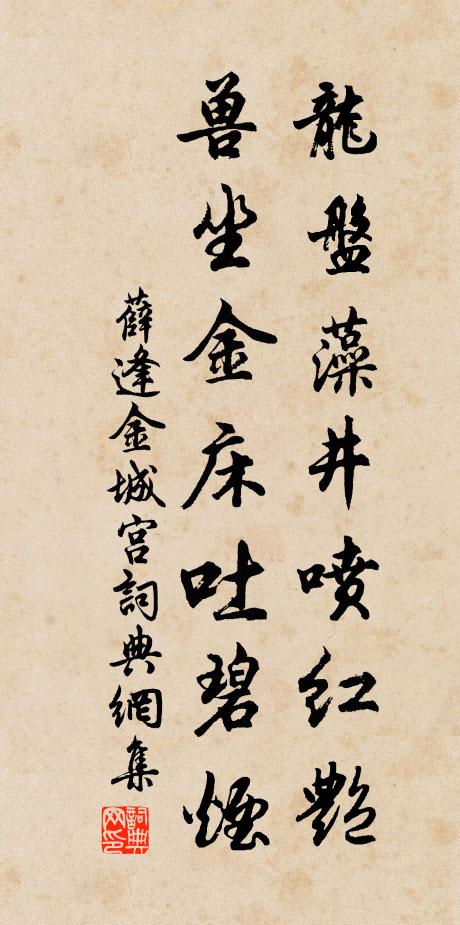 龍盤藻井噴红艷
兽坐金床吐碧煙
薛逢金城宫詞典網集
詞典网印